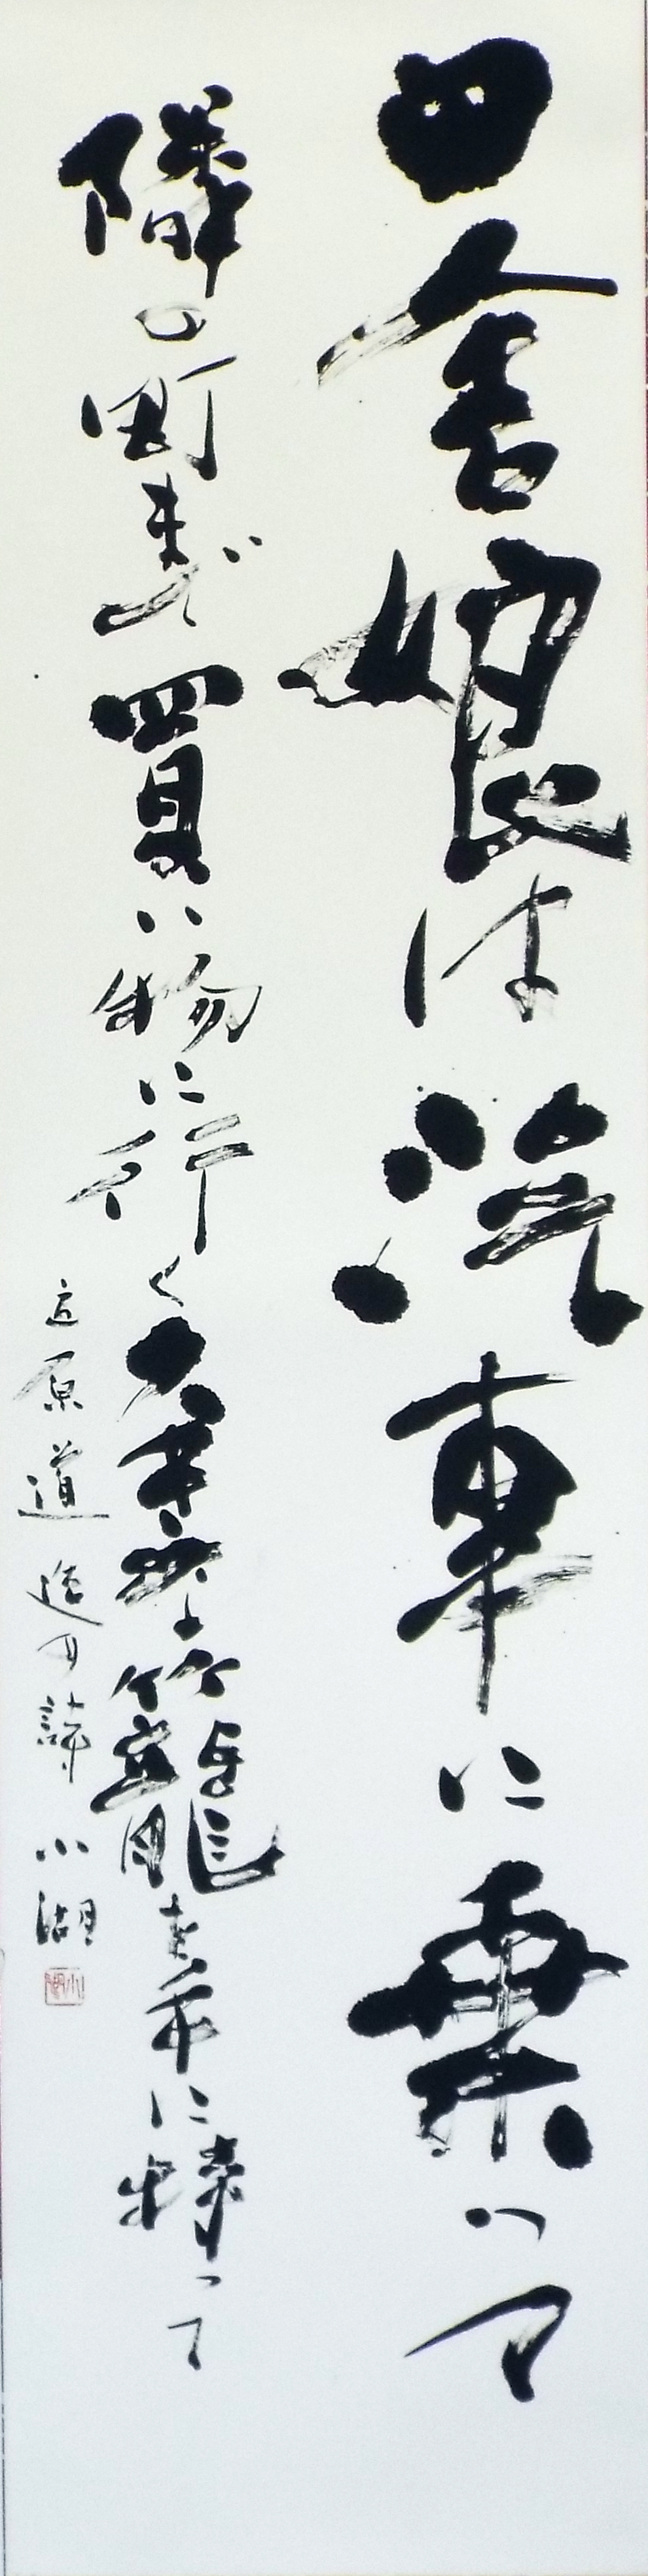 田舎娘は汽車に乗って
隣の町まで買い物に行く大きな籠を手に持って
立原道造の詩 小湖